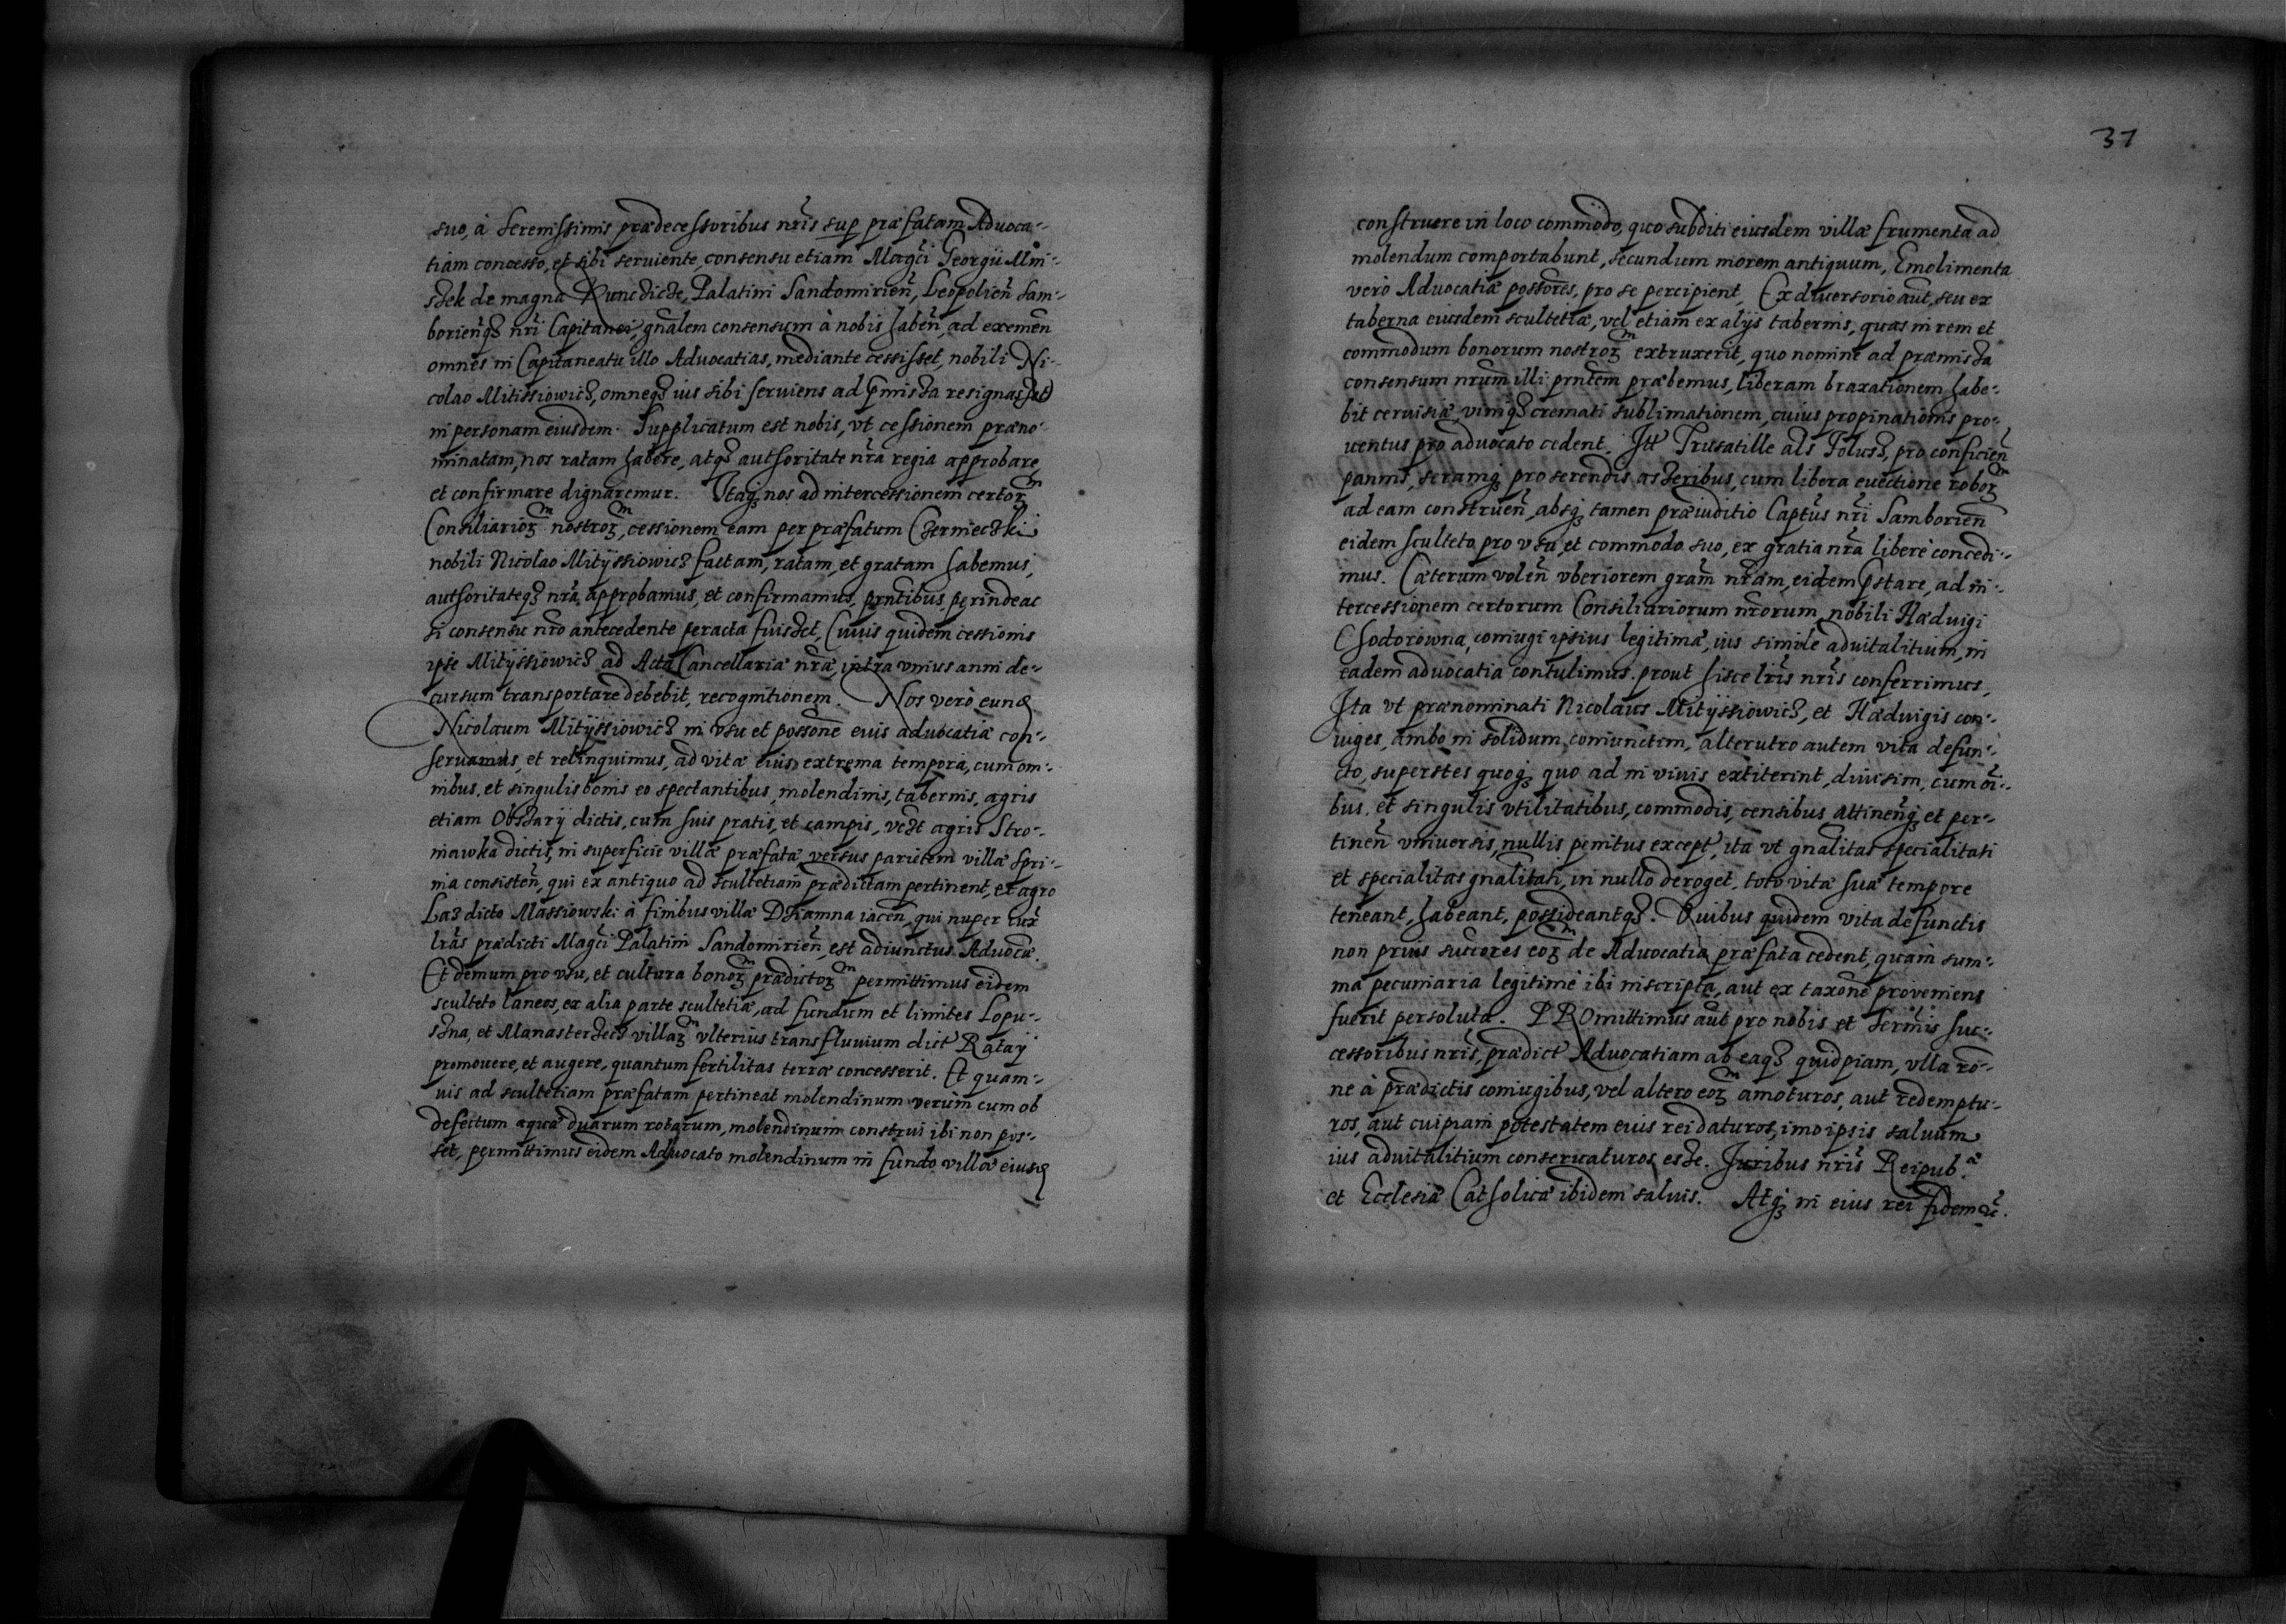 suo, à Serenissimis prædecessoribus nr̃is sup præfatam Advoca-
tiam concesso, et sibi serviente, consensu etiam Magc̃i Georgii Mni-
szek de magna Kunczicze, Palatini Sandomirien̄, Leopolien̄ Sam-
borien̄q₃ nr̃i Capitanei, gñalem consensum à nobis haben̄, ad exemen̄
omnes in Capitaneatu illo Advocatias, mediante cessisset, nobili Ni-
colao Mitissiowicz, omneq₃ ius sibi serviens ad p̃missa resignasset
in personam eiusdem. Supplicatum est nobis, vt cessionem præno-
minatam, nos ratam habere, atq₃ authoritate nr̃a regia approbare,
et confirmare dignaremur. Itaq₃ nos ad intercessionem certor̃
Consiliarior̃ nostror̃, cessionem eam per præfatum Czermieczki
nobili Nicolao Mitÿssiowicz factam, ratam, et gratam habemus,
authoritateq₃ nr̃a approbamus, et confirmamus, prñtibus, perinde ac
si consensu nr̃o antecedente peracta fuisset, Cuius quidem cessionis
ipse Mitÿssiowicz ad Acta Cancellariæ nr̃æ, intra vnius anni de-
cursum transportare debebit, recognitionem. Nos verò eund
Nicolaum Mitÿssiowicz in vsu et possõne eius advocatiæ con-
servamus, et relinquimus, ad vitæ eius extrema tempora, cum om-
nibus, et singulis bonis eo spectantibus, molendinis, tabernis, agris
etiam Obszarÿ dictis, cum suis pratis, et campis, vczt agris Stro-
niawka dictis, in superficie villæ præfatæ versus parietem villæ Spri-
nia consisten̄, qui ex antiquo ad scultetiam prædictam pertinent, et agro
Laz dicto Massiowski à finibus villæ Dziamna iacen̄, qui nuper iux̃
lr̃as prædicti Magc̃i Palatini Sandomirien̄, est adiunctus Advocã.
Et demum pro vsu, et cultura bonor̃ prædictor̃ permittimus eidem
sculteto laneos, ex alia parte scultetiæ, ad fundum et limites Lopu-
szna, et Manasterczecz villar̃ vlterius trans fluvium dict Rataÿ
promovere, et augere, quantum fertilitas terræ concesserit. Et quam-
vis ad scultetiam præfatam pertineat molendinum verùm cum ob
defectum aquæ duarum rotarum, molendinum construi ibi non pos-
set, permittimus eidem Advocato molendinum in fundo villæ eiusd
37
construere in loco commodo, quo subditi eiusdem villæ frumenta ad
molendum comportabunt, secundum morem antiquum, Emolimenta
verò Advocatiæ possores, pro se percipient, Ex diversorio aũt, seu ex
taberna eiusdem scultetiæ, vel etiam ex alijs tabernis, quas in rem et
commodum bonorum nostror̃ extruxerit, quo nomine ad præmissa
consensum nr̃um illi prñtem præbemus, liberam braxationem habe-
bit cervisiæ, viniq₃ cremati sublimationem, cuius propinationis pro-
ventus pro advocato cedent. Itt Trusatille als Folusz, pro conficien̄
pannis, serramq₃ pro serendis asseribus, cum libera evectione robor̃
ad eam construen̄, absq₃ tamen præiuditio Captũs nr̃i Samborien̄
eidem sculteto pro vsu, et commodo suo, ex gratia nr̃a liberè concedi-
mus. Cæterum volen̄ vberiorem grãm nr̃am, eidem p̃stare, ad in-
tercessionem certorum Consiliariorum nr̃orum, nobili Hædvigi
Chodorowna, coniugi ipsius legitimæ, ius simile advitalitium, in
eadem advocatia contulimus. prout hisce lr̃is nr̃is conferrimus,
Ita vt prænominati Nicolaus Mitÿssiowicz, et Hædvigis con-
iuges, ambo in solidum, coniunctim, alterutro autem vita defun-
cto, superstes quoq₃ quo ad in vivis extiterint, divisim, cum õi-
bus, et singulis vtilitatibus, commodis, censibus attinen̄q₃ et per-
tinen̄ vniversis, nullis penitus except, ita vt gñalitas specialitati
et specialitas gñalitati, in nullo deroget, toto vitæ suæ tempore
teneant, habeant, possideantq₃. Quibus quidem vita defunctis
non prius succores eor̃ de Advocatia præfata cedent, quàm sum-
ma pecuniaria legitimè ibi inscripta, aut ex taxõne proveniens
fuerit persoluta. PROmittimus aũt pro nobis et Serm̃is suc-
cessoribus nr̃is, prædict Advocatiam ab eaq₃ quidpiam, vlla rõ-
ne à prædictis coniugibus, vel altero eor̃ amoturos, aut redemptu-
ros, aut cuipiam potestatem eius rei daturos, imo ipsis salvum
ius advitalitium conservaturos esse. Iuribus nr̃is Reipub.æ
et Ecclesiæ Catholicæ ibidem salvis. Atq₃ in eius rei fidem ꝛc̃.